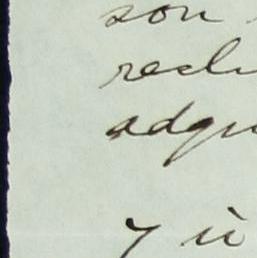 son
recl
adqu
y ú